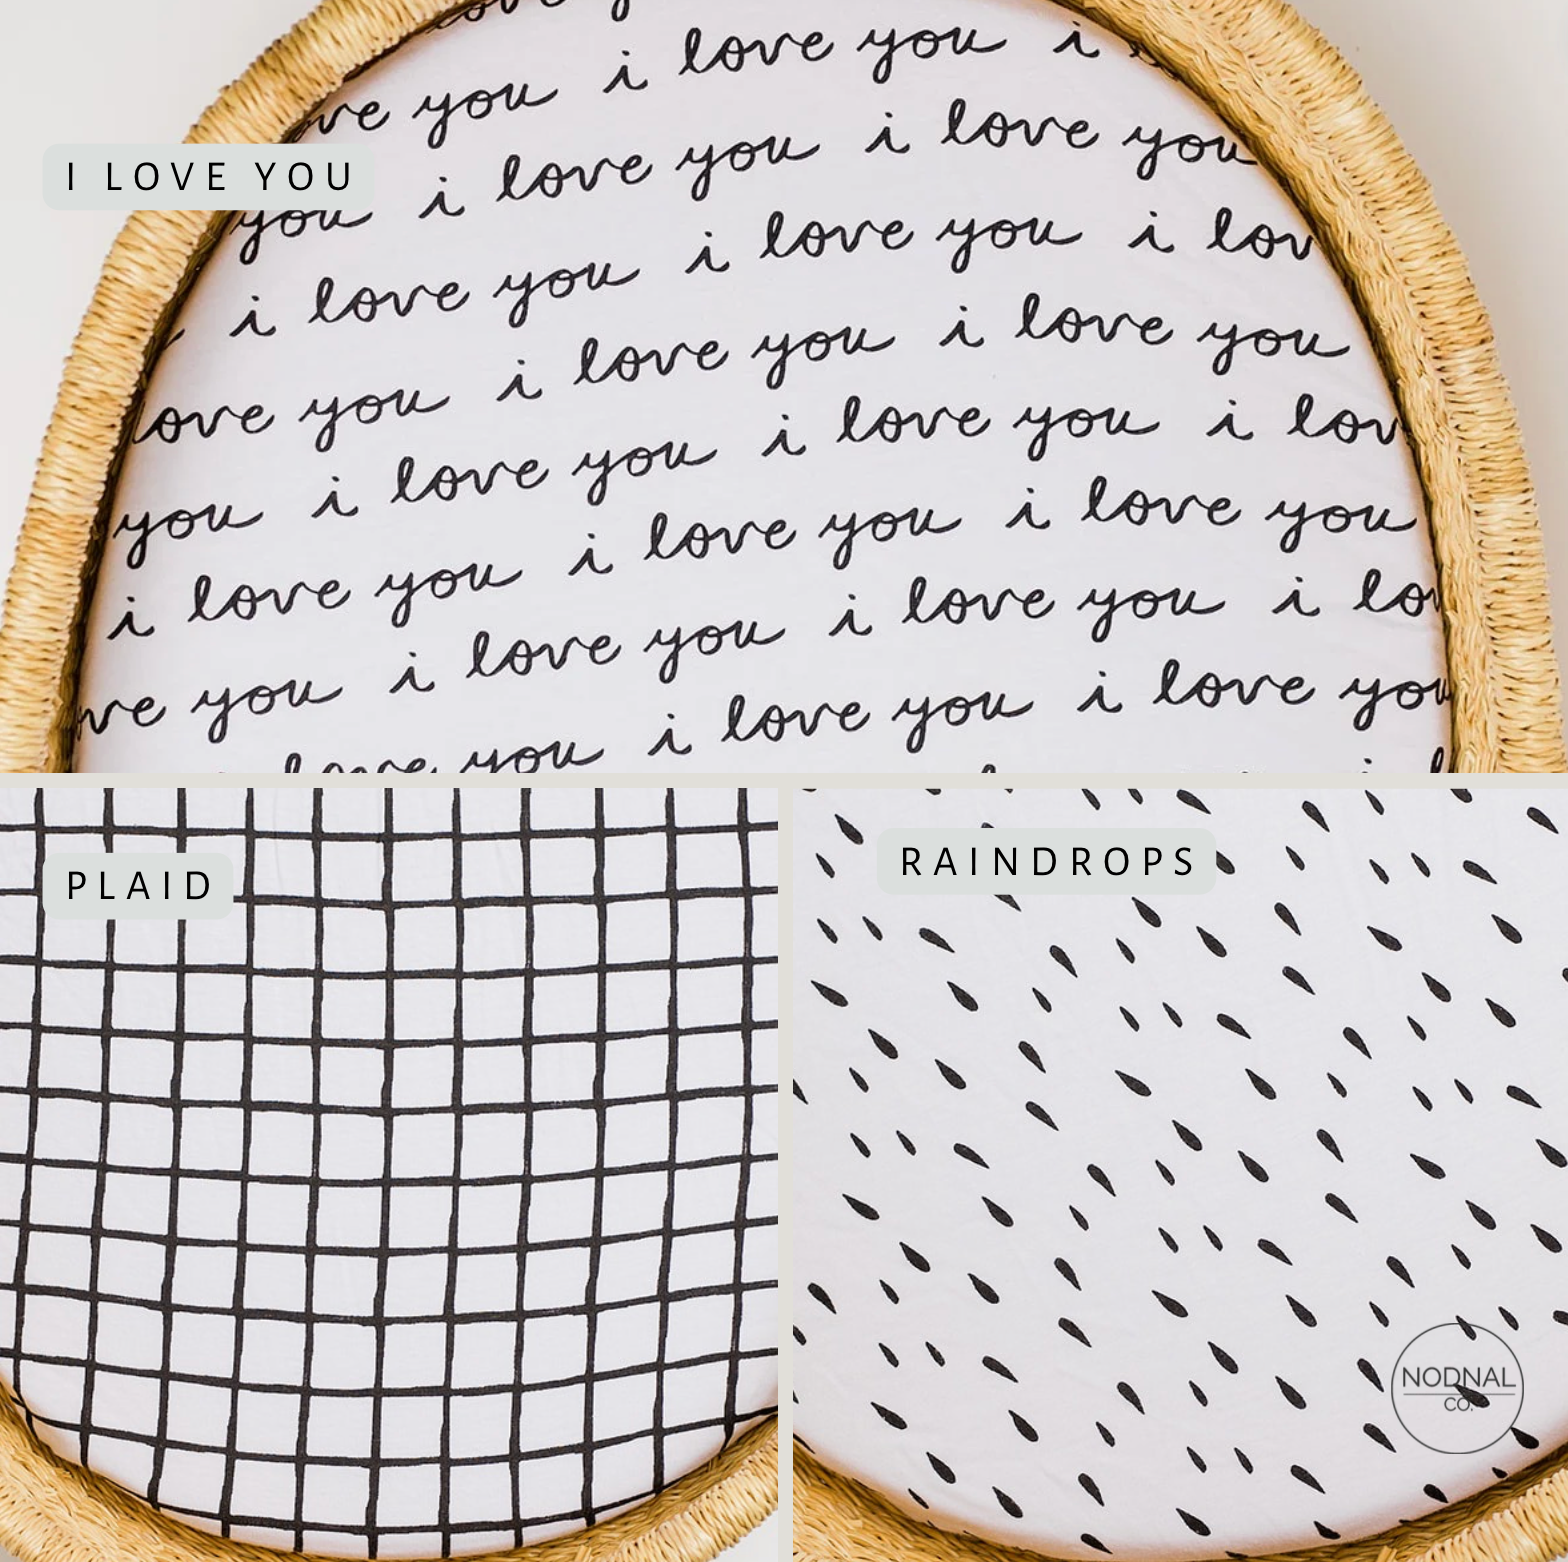 ove y
ve you i love you i
I LOVE YOU
you i love you i love you
i love you i love you i lov
ove you i love you i love you
you i love you i love you i lov
i love you i love you i love you
ve you i love you i love you i lo
love you i love you i love you
PLAID
RAINDROPS
NODNAL
CO.